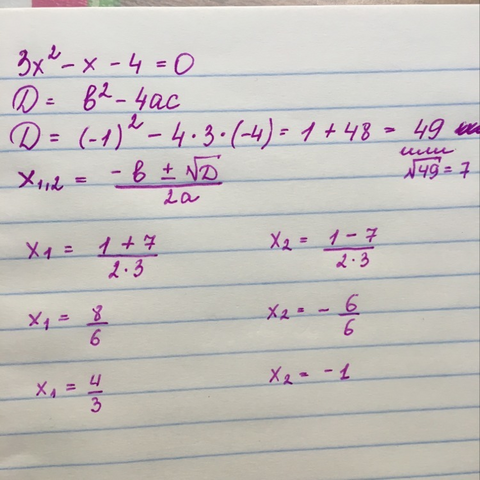 3x² - x - 4 = 0
D = b² - 4ac
D = (-1)² - 4·3·(-4) = 1 + 48 = 49
или
√49 = 7
x₁,₂ = (-b ± √D)/(2a)
x₁ = (1 + 7)/(2·3) x₂ = (1 - 7)/(2·3)
x₁ = 8/6 x₂ = - 6/6
x₁ = 4/3 x₂ = -1